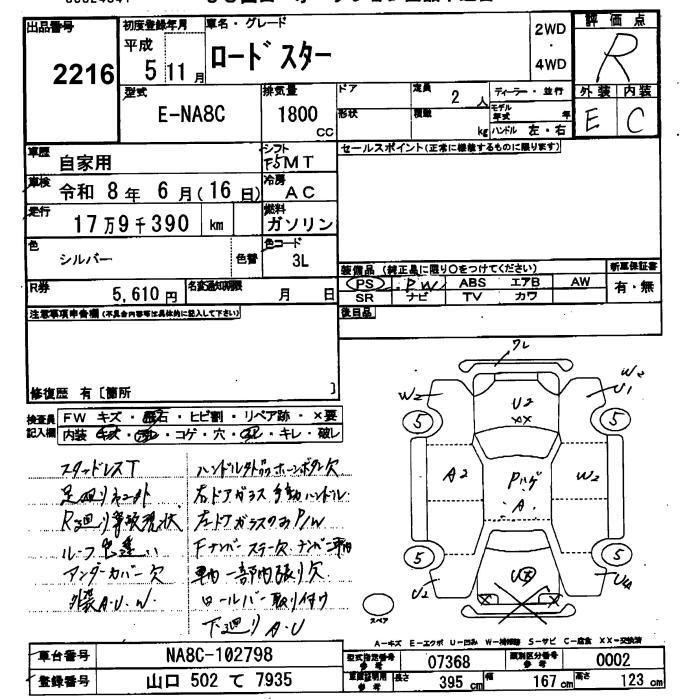 出品番号
2216
初度登録年月
平成
5 11月
車名・グレード
ロードスター
2WD
・
4WD
評価点
R
外装 内装
E C
型式
E-NA8C
排気量
1800
CC
ドア
形状
定員
2 人
積載
kg
ディーラー・並行
モデル年式 年
ハンドル 左・右
車歴
自家用
シフト
F5MT
セールスポイント(正常に稼働するものに限ります)
車検
令和 8年 6月(16日)
冷房
AC
走行
17万9千390 km
燃料
ガソリン
色
シルバー
色替
色コード
3L
装備品 (純正品に限り○をつけてください)
PS PW ABS エアB AW
SR ナビ TV カワ
新車保証書
有・無
R券
5,610円
名変通知期限
月 日
後日品
注意事項申告欄(不具合内容等は具体的に記入して下さい)
修復歴 有[箇所 ]
検査員記入欄
FW キズ・飛石・ヒビ割・リペア跡・×要
内装・キズ・汚レ・コゲ・穴・スレ・キレ・破レ
スタッドレスT
足廻りキシミ
R廻り等現状
ルーフ色違い
アンダーカバー欠
外装A.U.W.
ハンドル社外ホーンボタン欠
右ドアガラス手動ハンドル
左ドアガラスのみP/W
Fナンバーステー欠 ナンバー車内
車内一部内張り欠
ロールバー取り付け
下廻りA.U
ワレ
W2
U2
XX
W2
U1
5
5
A2
Pハゲ
A
W2
5
5
U2
UX
X
X
U4
スペア
A-キズ E-エクボ U-凹み W-補修跡 S-サビ C-腐食 XX-交換済
車台番号
NA8C-102798
型式指定番号
参考
07368
類別区分番号
参考
0002
登録番号
山口 502 て 7935
車庫証明用
参考
長さ
395 cm
幅
167 cm
高さ
123 cm